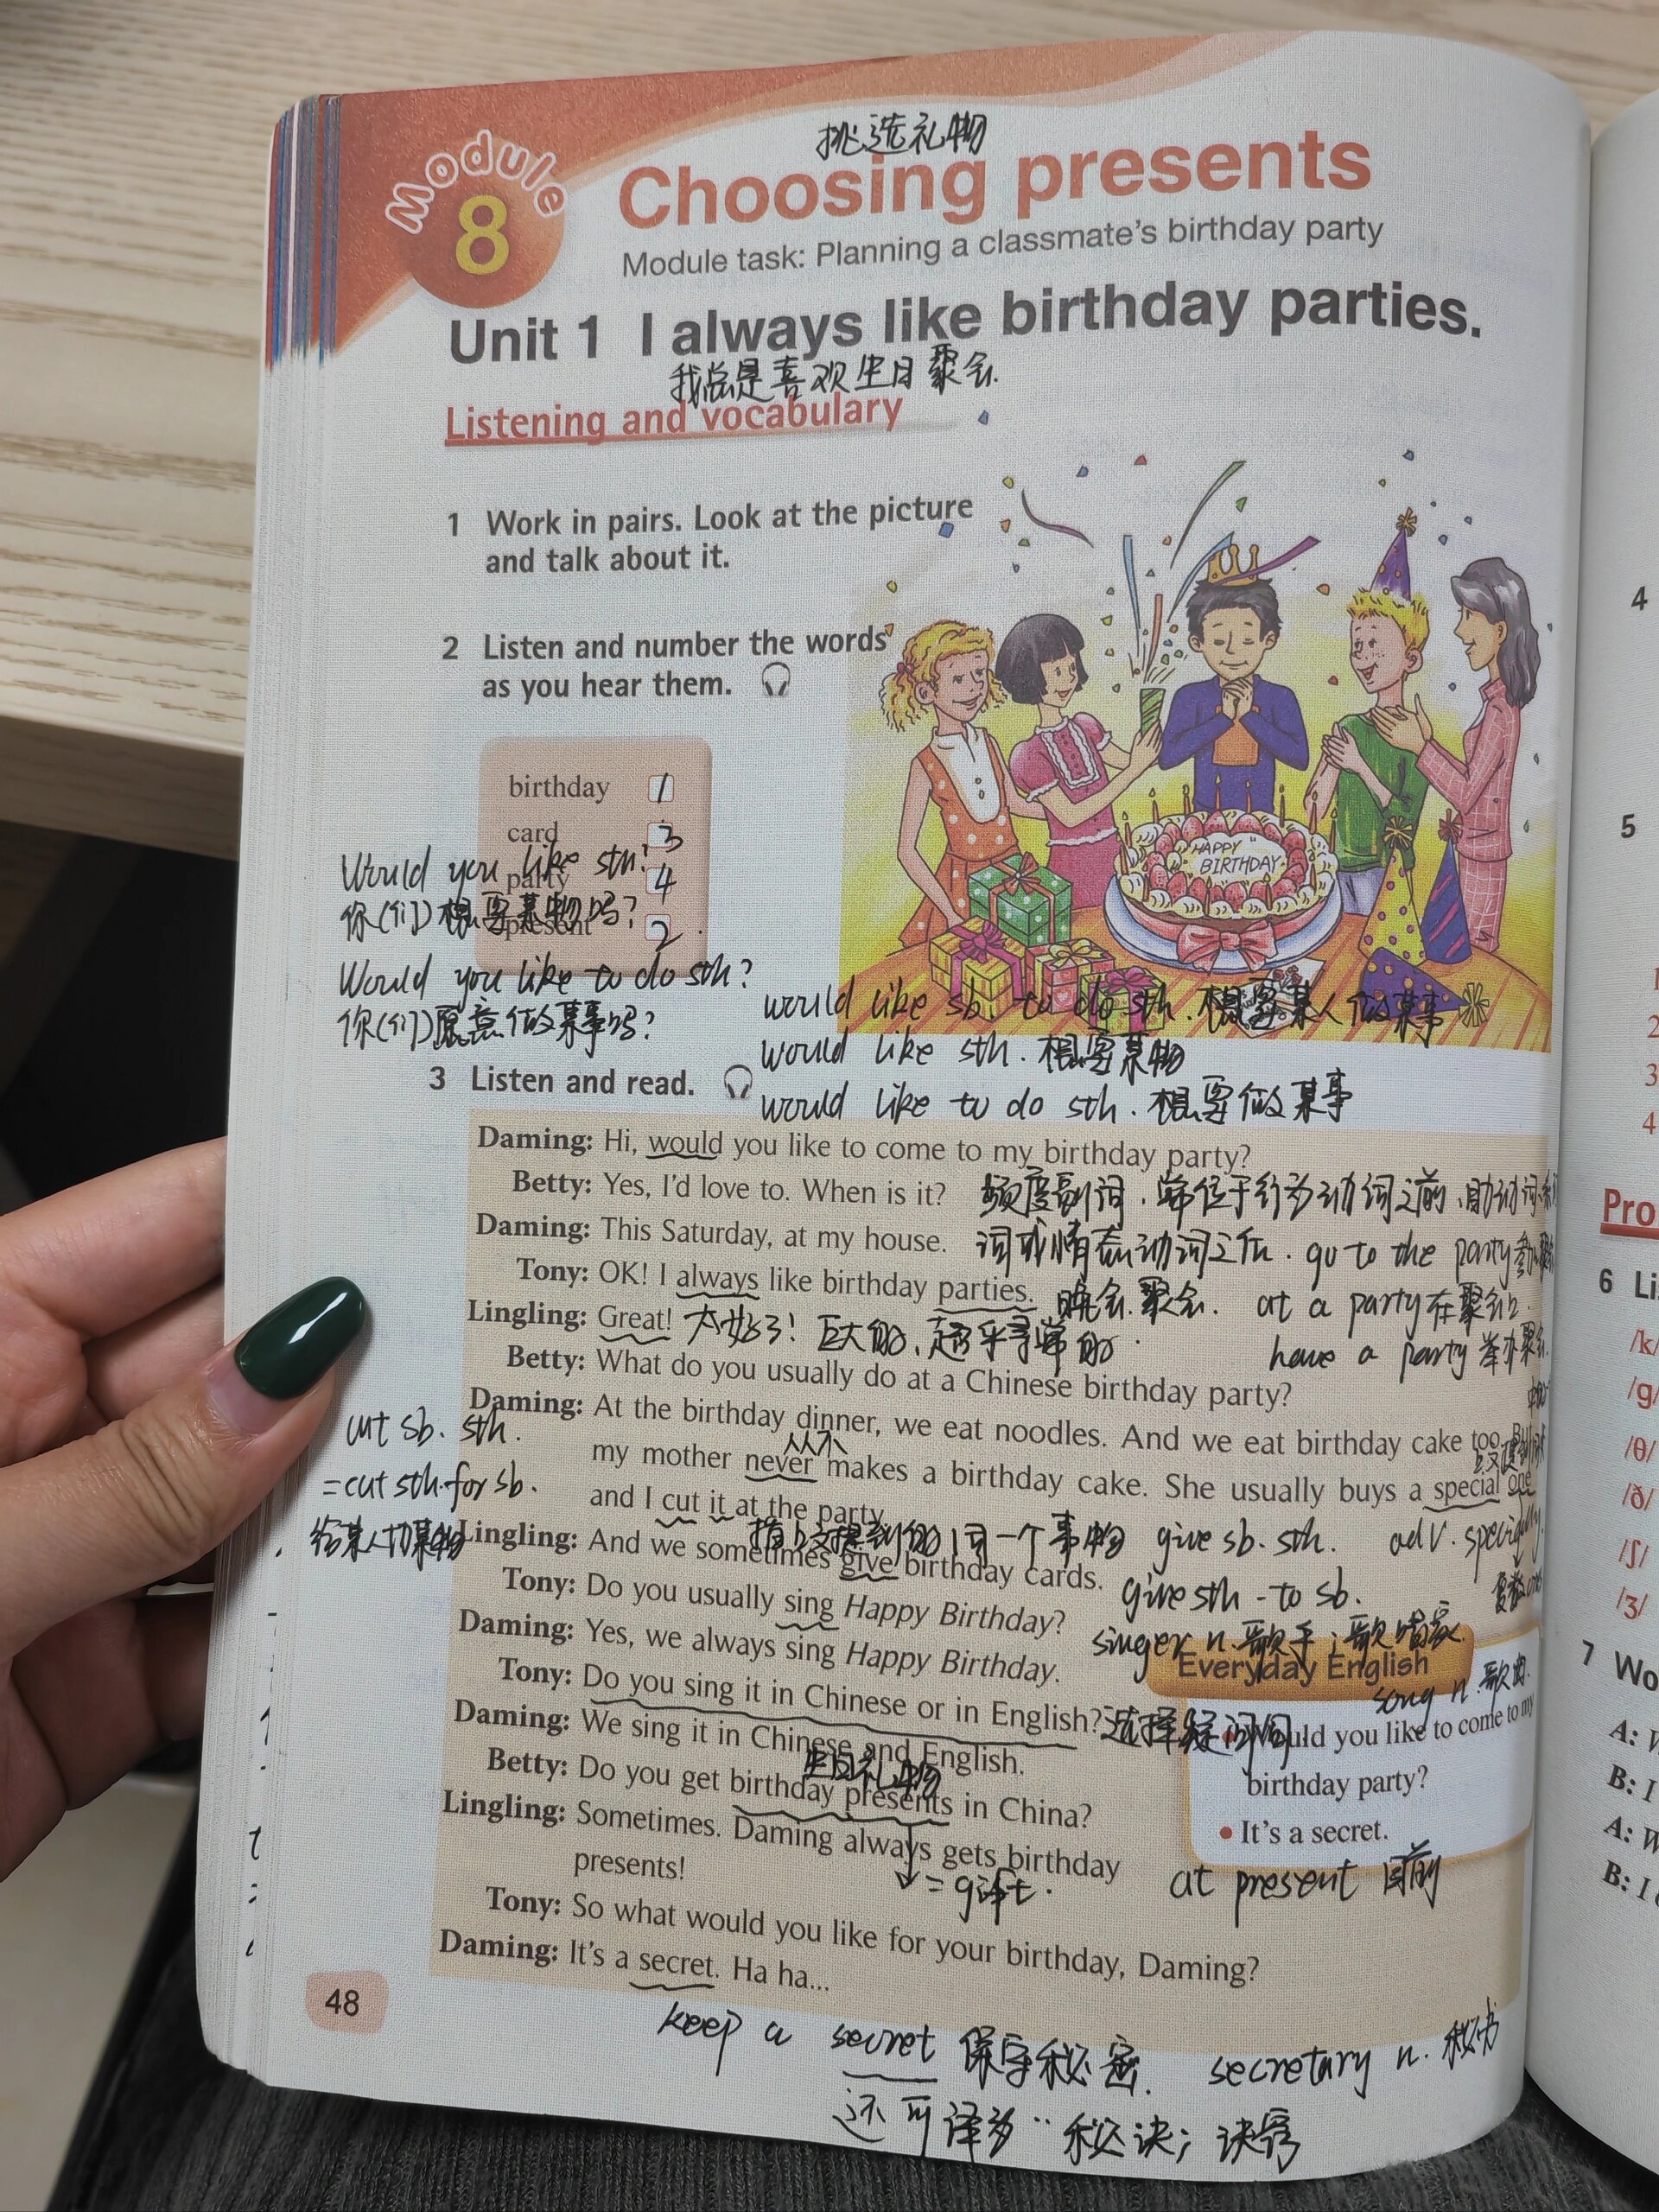 Module
8
挑选礼物
Choosing presents
Module task: Planning a classmate's birthday party
Unit 1 I always like birthday parties.
我总是喜欢生日聚会.
Listening and vocabulary
1 Work in pairs. Look at the picture
and talk about it.
2 Listen and number the words
as you hear them.
birthday 1
card 3
party 4
present 2
HAPPY
BIRTHDAY
Would you like sth?
你(们)想要某物吗?
Would you like to do sth?
你(们)愿意做某事吗?
would like sb. to do sth. 想要某人做某事
would like sth. 想要某物
would like to do sth. 想要做某事
3 Listen and read.
Daming: Hi, would you like to come to my birthday party?
Betty: Yes, I'd love to. When is it?
频度副词,常位于行为动词之前、助动词、
Daming: This Saturday, at my house.
词或情态动词之后. go to the party
Tony: OK! I always like birthday parties.
晚会.聚会. at a party 在聚会上.
Lingling: Great! 太好了! 巨大的、超乎寻常的.
have a party 举办聚会.
Betty: What do you usually do at a Chinese birthday party?
Daming: At the birthday dinner, we eat noodles. And we eat birthday cake too. But
从不
my mother never makes a birthday cake. She usually buys a special one
and I cut it at the party.
cut sb. sth.
=cut sth. for sb.
给某人切某物
指上文提到的同一个事物 give sb. sth. adv. specially.
Lingling: And we sometimes give birthday cards.
give sth - to sb.
Tony: Do you usually sing Happy Birthday?
singer n. 歌手;歌唱家.
Daming: Yes, we always sing Happy Birthday.
song n. 歌曲.
Tony: Do you sing it in Chinese or in English? 选择疑问句.
Daming: We sing it in Chinese and English.
生日礼物
Betty: Do you get birthday presents in China?
Lingling: Sometimes. Daming always gets birthday
presents!
= gift.
Tony: So what would you like for your birthday, Daming?
Daming: It's a secret. Ha ha...
Everyday English
• Would you like to come to my
birthday party?
• It's a secret.
at present 目前
48
keep a secret 保守秘密. secretary n. 秘书
还可译为"秘诀;诀窍
4
5
1
2
3
4
Pro
6 Li
/k/
/g/
/θ/
/ð/
/ʃ/
/ʒ/
7 Wo
A: W
B: I
A: W
B: I